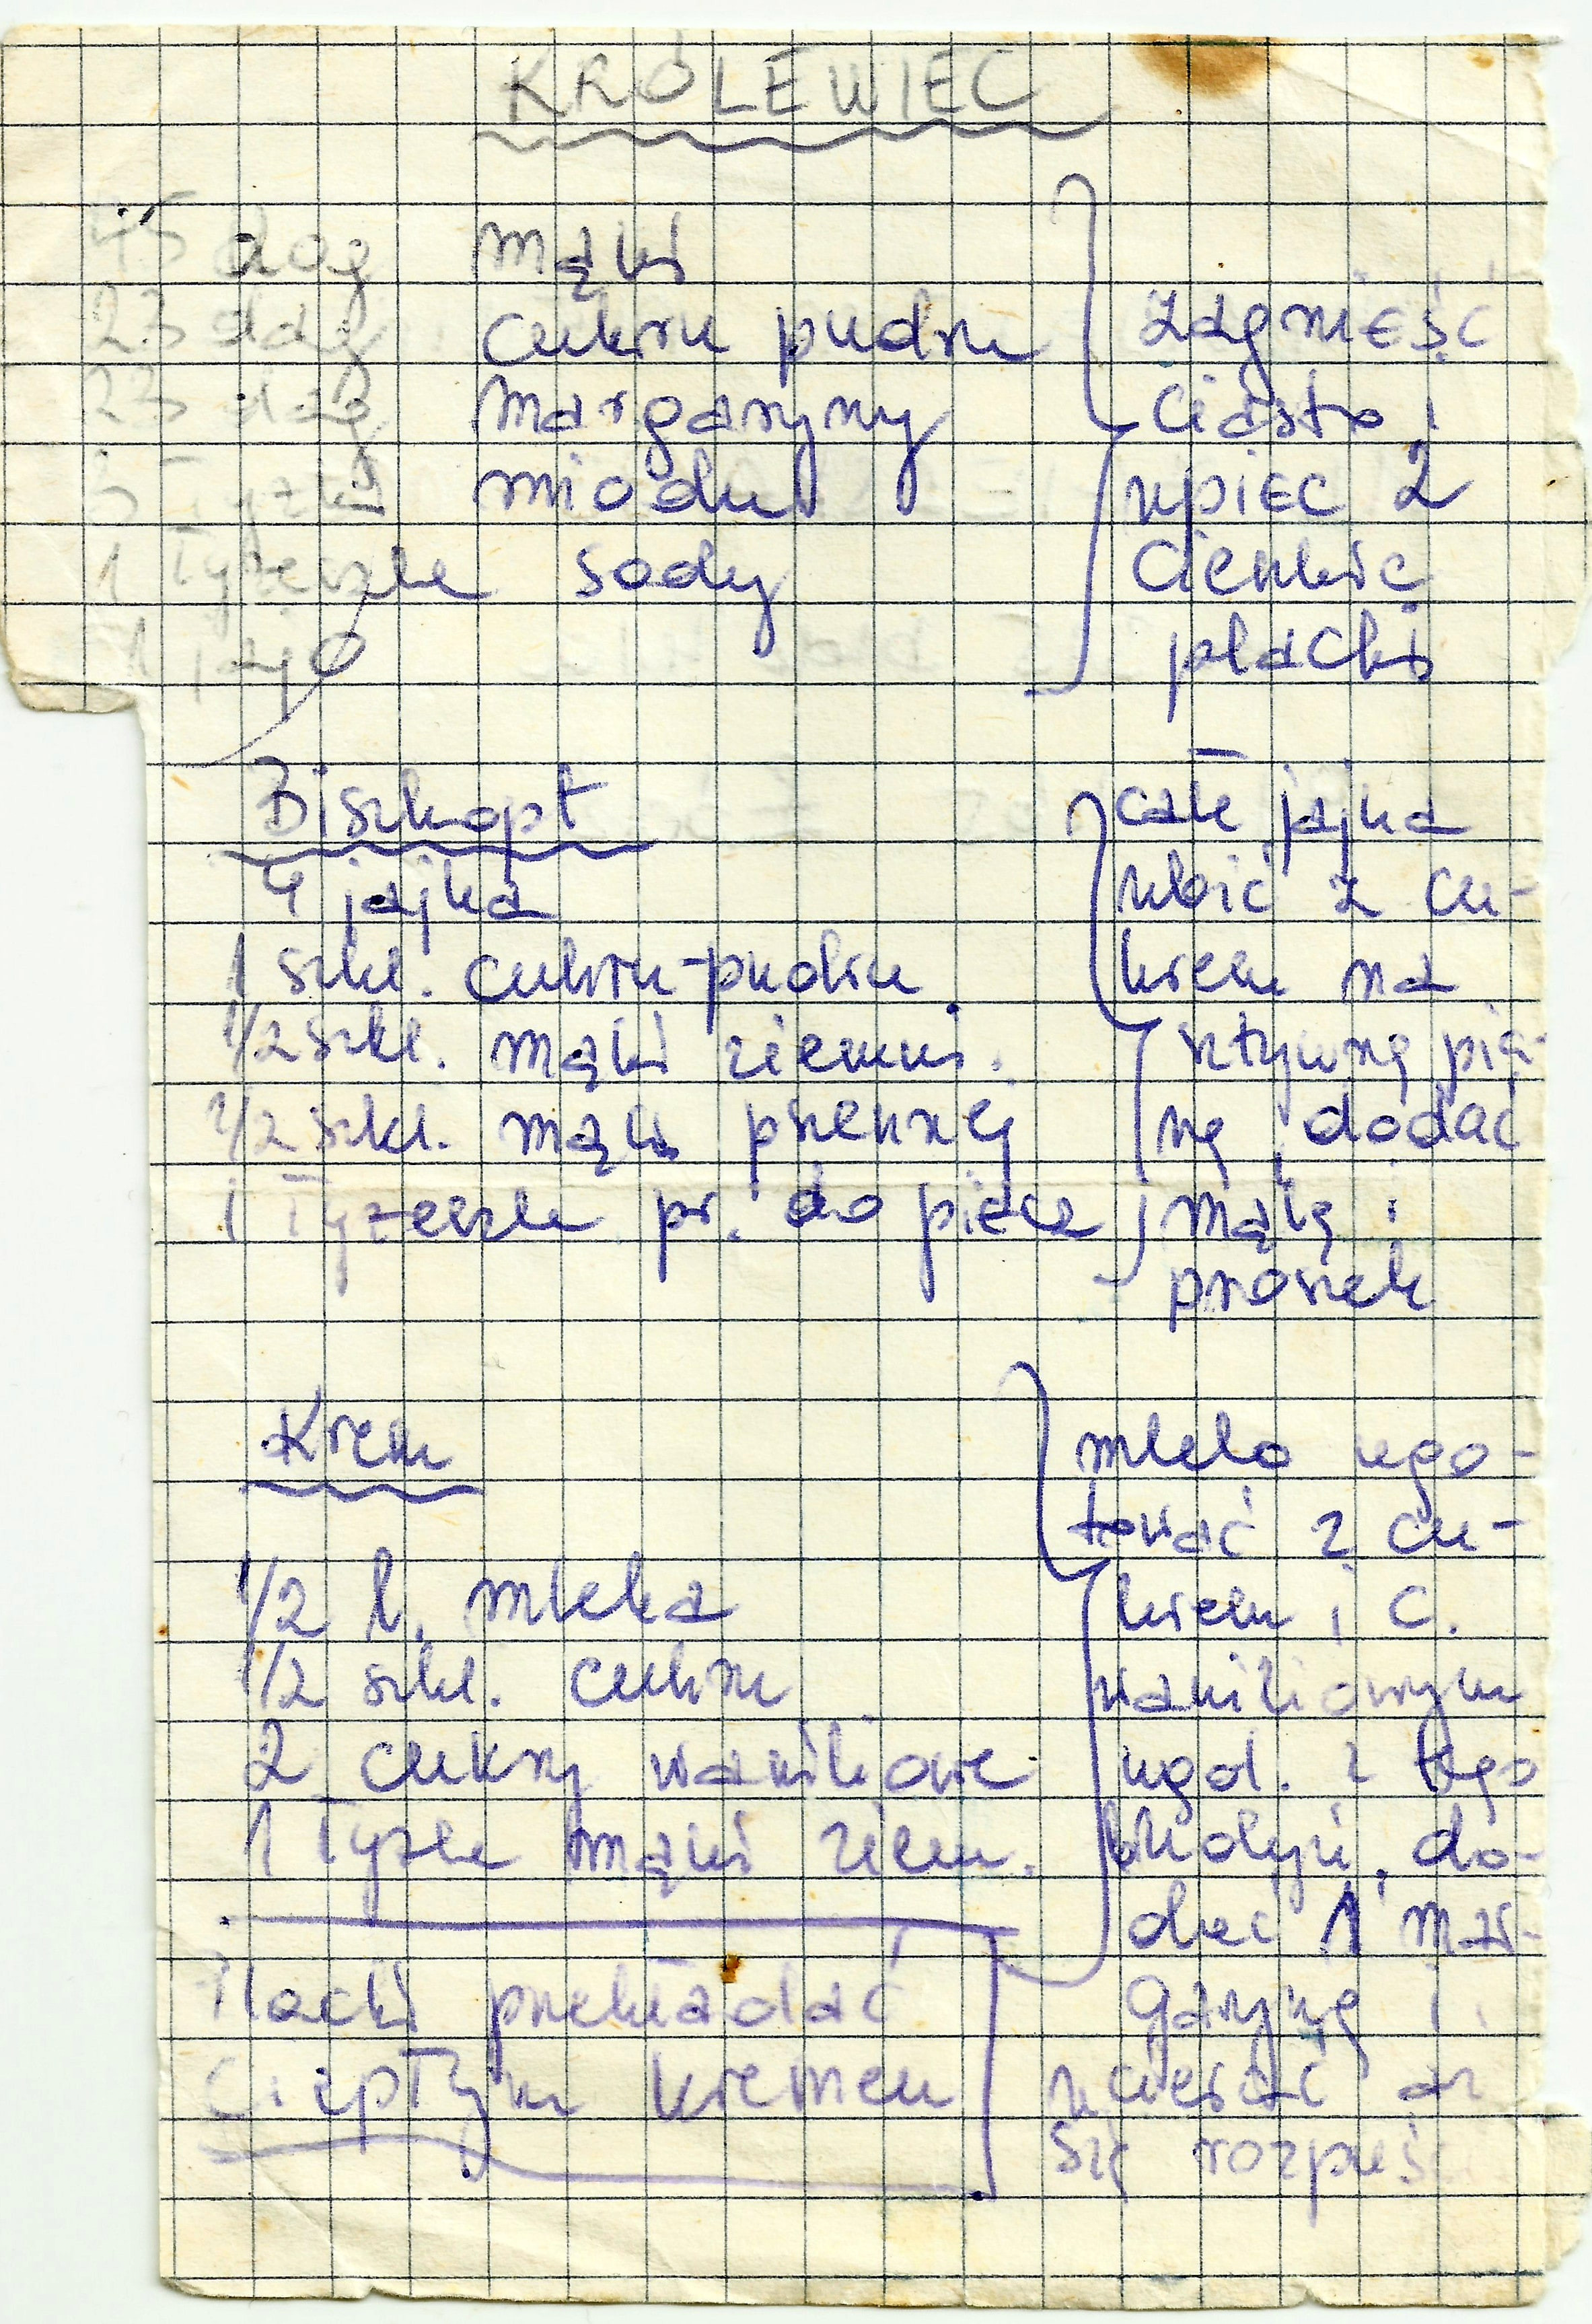 KRÓLEWIEC
45 dag mąki
23 dag cukru pudru
23 dag margaryny
3 łyżki miodu
1 łyżeczka sody
1 jajo
zagnieść
ciasto i
upiec 2
cienkie
placki
Biszkopt
4 jajka
1 szkl. cukru-pudru
1/2 szkl. mąki ziemni.
1/2 szkl. mąki pszennej
1 łyżeczka pr. do piecz
całe jajka
ubić z cu-
krem na
sztywną pia-
nę, dodać
mąkę i
proszek
Krem
1/2 l. mleka
1/2 szkl. cukru
2 cukry waniliowe
1 łyżka mąki ziem.
mleko ugo-
tować z cu-
krem i c.
waniliowym
ugot. z tego
budyń, do-
dać 1 mar-
garynę i
ucierać aż
się rozpuści
Placki przekładać
ciepłym kremem